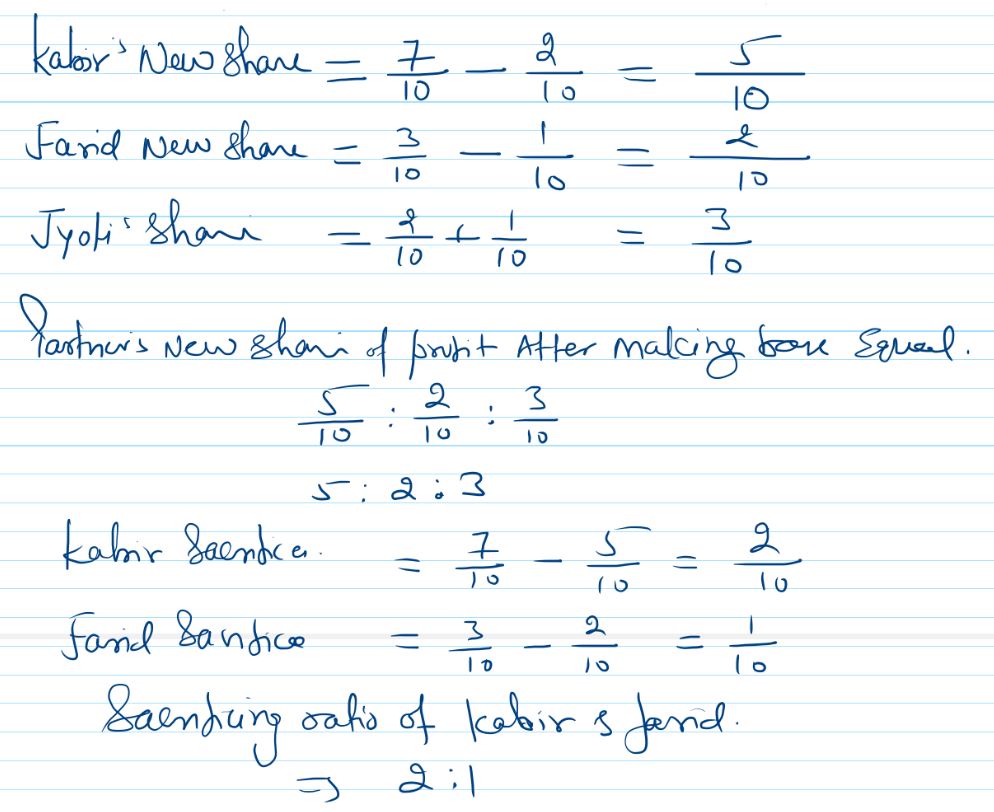 Kabir's New Share = 7/10 - 2/10 = 5/10
Farid New Share = 3/10 - 1/10 = 2/10
Jyoti's Share = 2/10 + 1/10 = 3/10
Partner's New Share of profit After making base Equal.
5/10 : 2/10 : 3/10
5 : 2 : 3
Kabir Sacrifice. = 7/10 - 5/10 = 2/10
Farid Sacrifice = 3/10 - 2/10 = 1/10
Sacrificing ratio of Kabir & farid.
⇒ 2:1